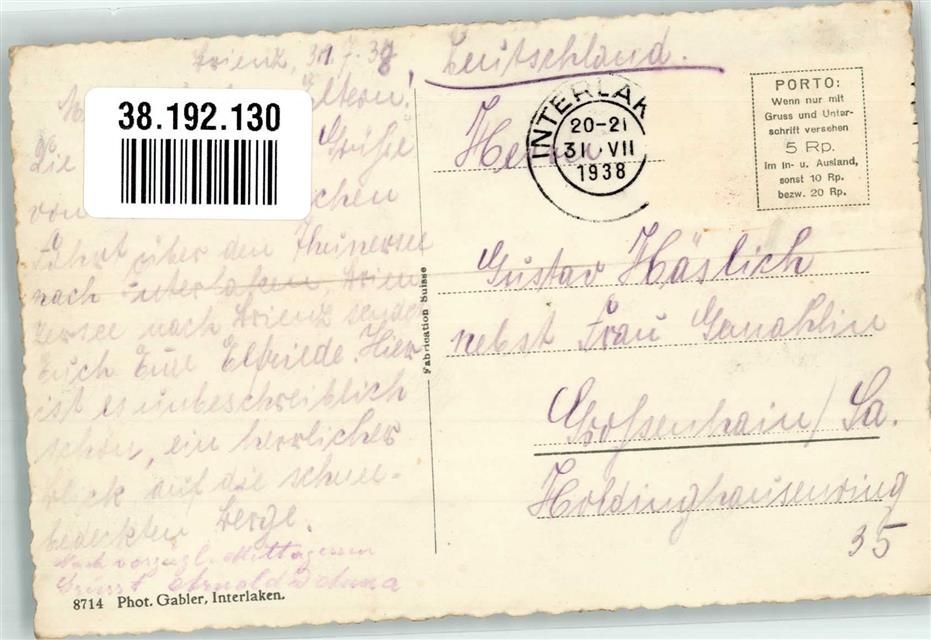 Brienz, 31.7.38
Deutschland.
38.192.130
Eltern.
Die Grüße
von
Fahrt über den Thunersee
nach Interlaken, Brien
zersee nach Brienz sendet
Euch Eure Elfriede. Hier
ist es unbeschreiblich
schön, ein herrlicher
Blick auf die schnee-
bedeckten Berge.
Nach vorzügl. Mittagessen
Grüsst Arnold
8714 Phot. Gabler, Interlaken.
Fabrication Suisse
INTERLAK
20-21
31 VII
1938
PORTO:
Wenn nur mit
Gruss und Unter-
schrift versehen
5 Rp.
im In- u. Ausland,
sonst 10 Rp.
bezw. 20 Rp.
Herrn
Gustav Häslich
nebst Frau Gemahlin
Großenhain/Sa.
Holdinghausenring
35